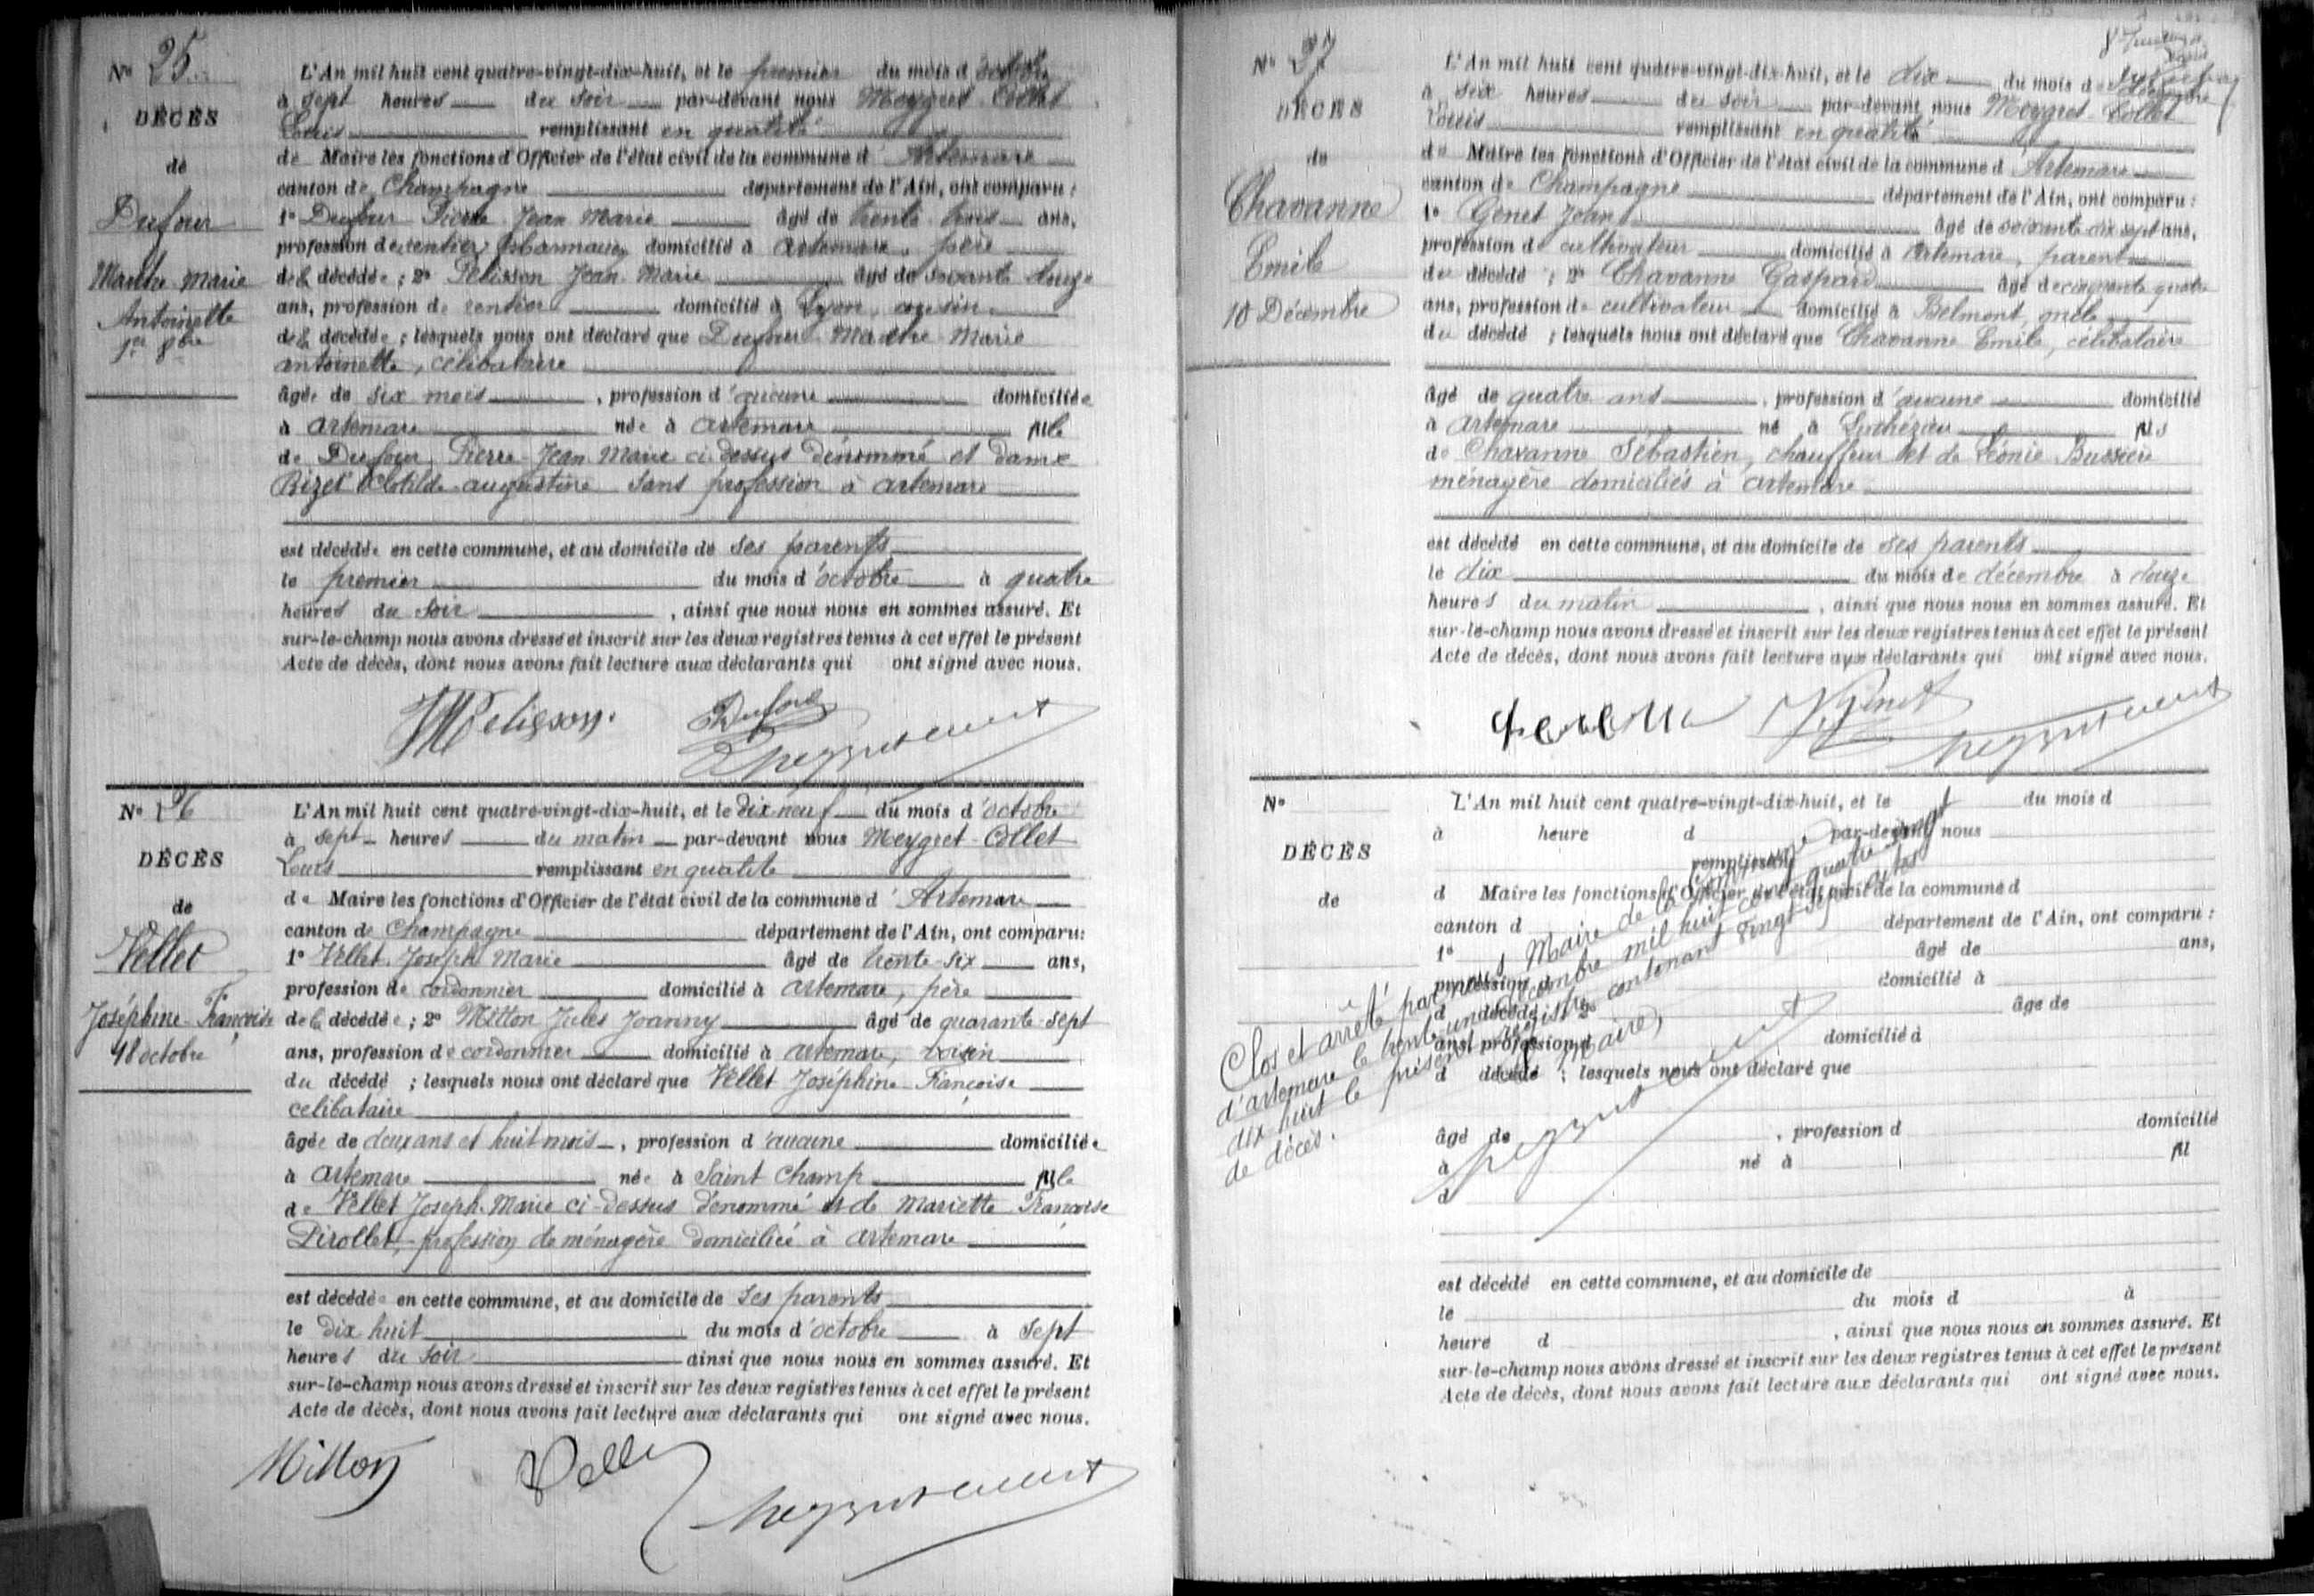 N° 25
DÉCÈS
de
Dufour
Marthe Marie
Antoinette
1er 8bre
L'An mil huit cent quatre-vingt-dix-huit, et le premier du mois d'octobre
à sept heures du soir par-devant nous Meygret-Collet
Louis remplissant en qualité
de Maire les fonctions d'Officier de l'état civil de la commune d'Artemare
canton de Champagne département de l'Ain, ont comparu :
1° Dufour Pierre Jean Marie âgé de trente trois ans,
profession de rentier domicilié à Artemare, père
de la décédée ; 2° Pélisson Jean Marie âgé de soixante douze
ans, profession de rentier domicilié à Lyon,
de la décédée ; lesquels nous ont déclaré que Dufour Marthe Marie
antoinette, célibataire
âgée de six mois, profession d'aucune domiciliée
à Artemare née à Artemare fille
de Dufour Pierre Jean Marie ci-dessus dénommé et dame
Bizet Clotilde augustine sans profession à artemare
est décédée en cette commune, et au domicile de ses parents
le premier du mois d'octobre à quatre
heures du soir, ainsi que nous nous en sommes assuré. Et
sur-le-champ nous avons dressé et inscrit sur les deux registres tenus à cet effet le présent
Acte de décès, dont nous avons fait lecture aux déclarants qui ont signé avec nous.
Pelisson Dufour
N° 26
DÉCÈS
de
Vellet
Joséphine Françoise
18 octobre
L'An mil huit cent quatre-vingt-dix-huit, et le dix neuf du mois d'octobre
à sept heures du matin par-devant nous Meygret-Collet
Louis remplissant en qualité
de Maire les fonctions d'Officier de l'état civil de la commune d'Artemare
canton de Champagne département de l'Ain, ont comparu :
1° Vellet Joseph Marie âgé de trente-six ans,
profession de cordonnier domicilié à artemare, père
de la décédée ; 2° Mitton Jules Joanny âgé de quarante-sept
ans, profession de cordonnier domicilié à artemare, voisin
du décédé ; lesquels nous ont déclaré que Vellet Joséphine Françoise
célibataire
âgée de deux ans et huit mois, profession d'aucune domiciliée
à artemare née à Saint Champ fille
de Vellet Joseph-Marie ci-dessus dénommé et de Mariette Françoise
Pirollet, profession de ménagère domiciliée à artemare
est décédée en cette commune, et au domicile de ses parents
le dix huit du mois d'octobre à sept
heures du soir ainsi que nous nous en sommes assuré. Et
sur-le-champ nous avons dressé et inscrit sur les deux registres tenus à cet effet le présent
Acte de décès, dont nous avons fait lecture aux déclarants qui ont signé avec nous.
Mitton Vellet
N° 27
DÉCÈS
de
Chavanne
Emile
10 Décembre
L'An mil huit cent quatre-vingt-dix-huit, et le dix du mois de décembre
à six heures du soir par-devant nous Meygret-Collet
Louis remplissant en qualité
de Maire les fonctions d'Officier de l'état civil de la commune d'Artemare
canton de Champagne département de l'Ain, ont comparu :
1° Genet Jean âgé de soixante-dix sept ans,
profession de cultivateur domicilié à Artemare, parent
du décédé ; 2° Chavanne Gaspard âgé de cinquante quatre
ans, profession de cultivateur domicilié à Belmont, oncle
du décédé ; lesquels nous ont déclaré que Chavanne Emile, célibataire
âgé de quatre ans, profession d'aucune domicilié
à Artemare né à Luthézieu fils
de Chavanne Sébastien, chauffeur et de Léonie Bussière
ménagère domiciliés à Artemare
est décédé en cette commune, et au domicile de ses parents
le dix du mois de décembre à douze
heures du matin, ainsi que nous nous en sommes assuré. Et
sur-le-champ nous avons dressé et inscrit sur les deux registres tenus à cet effet le présent
Acte de décès, dont nous avons fait lecture aux déclarants qui ont signé avec nous.
Genet
N°
DÉCÈS
de
L'An mil huit cent quatre-vingt-dix-huit, et le du mois d
à heure d par-devant nous
remplissant
d Maire les fonctions d'Officier de l'état civil de la commune d
canton d département de l'Ain, ont comparu :
1° âgé de ans,
profession d domicilié à
d décédé 2° âgé de
ans, profession d domicilié à
d décédé ; lesquels nous ont déclaré que
âgé de , profession d domicilié
à né à fil
d
est décédé en cette commune, et au domicile de
le du mois d à
heure d , ainsi que nous nous en sommes assuré. Et
sur-le-champ nous avons dressé et inscrit sur les deux registres tenus à cet effet le présent
Acte de décès, dont nous avons fait lecture aux déclarants qui ont signé avec nous.
Clos et arrêté par nous Maire de la Commune
d'artemare le trente un décembre mil huit cent quatre vingt
dix huit le présent registre contenant vingt-sept actes
de décès.
Maire,